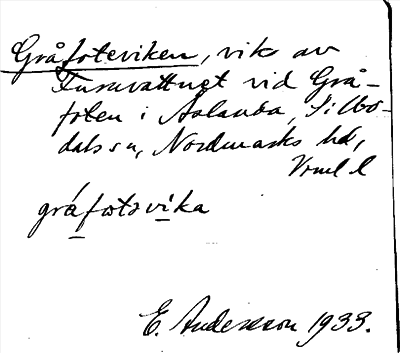 Gråfoteviken, vik av
Furuvattnet vid Grå-
foten i Aslanda, Silbo-
dals sn, Nordmarks hd,
Vrml l
gráfotsvika
E. Andersson 1933.